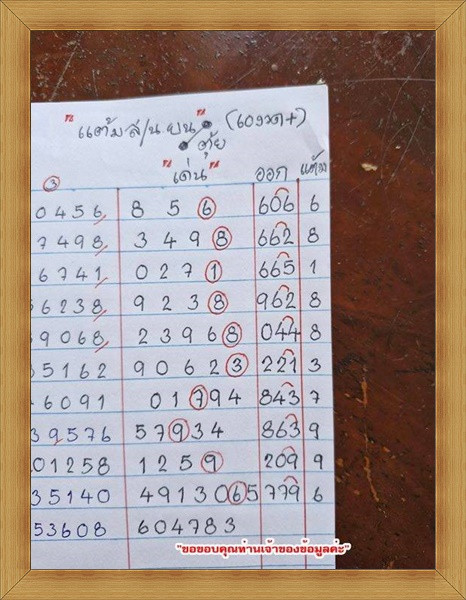 แต้ม ส/น.บน (เองวด+)
ตุ้ย
③ เด่น ออก แต้ม
0456 8 5 6 606 6
7498 3 4 9 8 662 8
6741 0 2 7 1 665 1
6238 9 2 3 8 962 8
9068 2 3 9 6 8 044 8
35162 9 0 6 2 3 221 3
6091 0 1 7 9 4 843 7
39576 5 7 9 3 4 863 9
01258 1 2 5 9 209 9
35140 4 9 1 3 0 6 5 779 6
53608 6 0 4 7 8 3
"ขอขอบคุณท่านเจ้าของข้อมูลค่ะ"